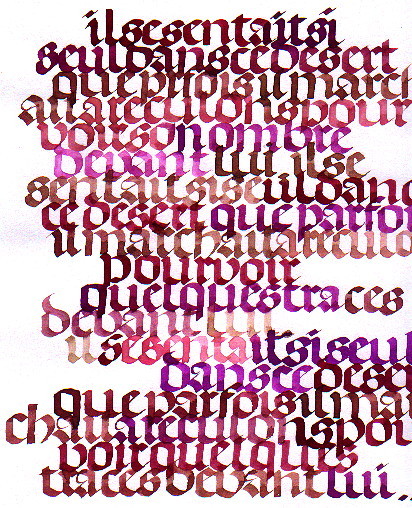 ilsesentaitsi
seuldanscedesert
queparfoisilmarch
aitareculonspour
voirsonombre
devantlui ilse
sentaitsiseuldans
cedesertqueparfoi
ilmarchaitareculo
pourvoir
quelquestraces
devantlui
ilsesentaitsiseul
danscedeser
queparfoisilmar
chaitareculonspou
voirquelques
tracesdevantlui...